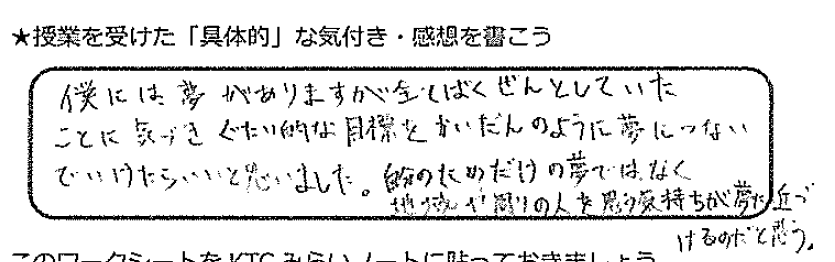 ★授業を受けた「具体的」な気付き・感想を書こう
僕には夢がありますが全てばくぜんとしていた
ことに気づきぐたい的な目標をかいだんのように夢につない
でいけたらいいと思いました。自分のためだけの夢ではなく
地域や周りの人を思う気持ちが夢に近づ
けるのだと思う。
このワークシートをKTCみらいノートに貼っておきましょう